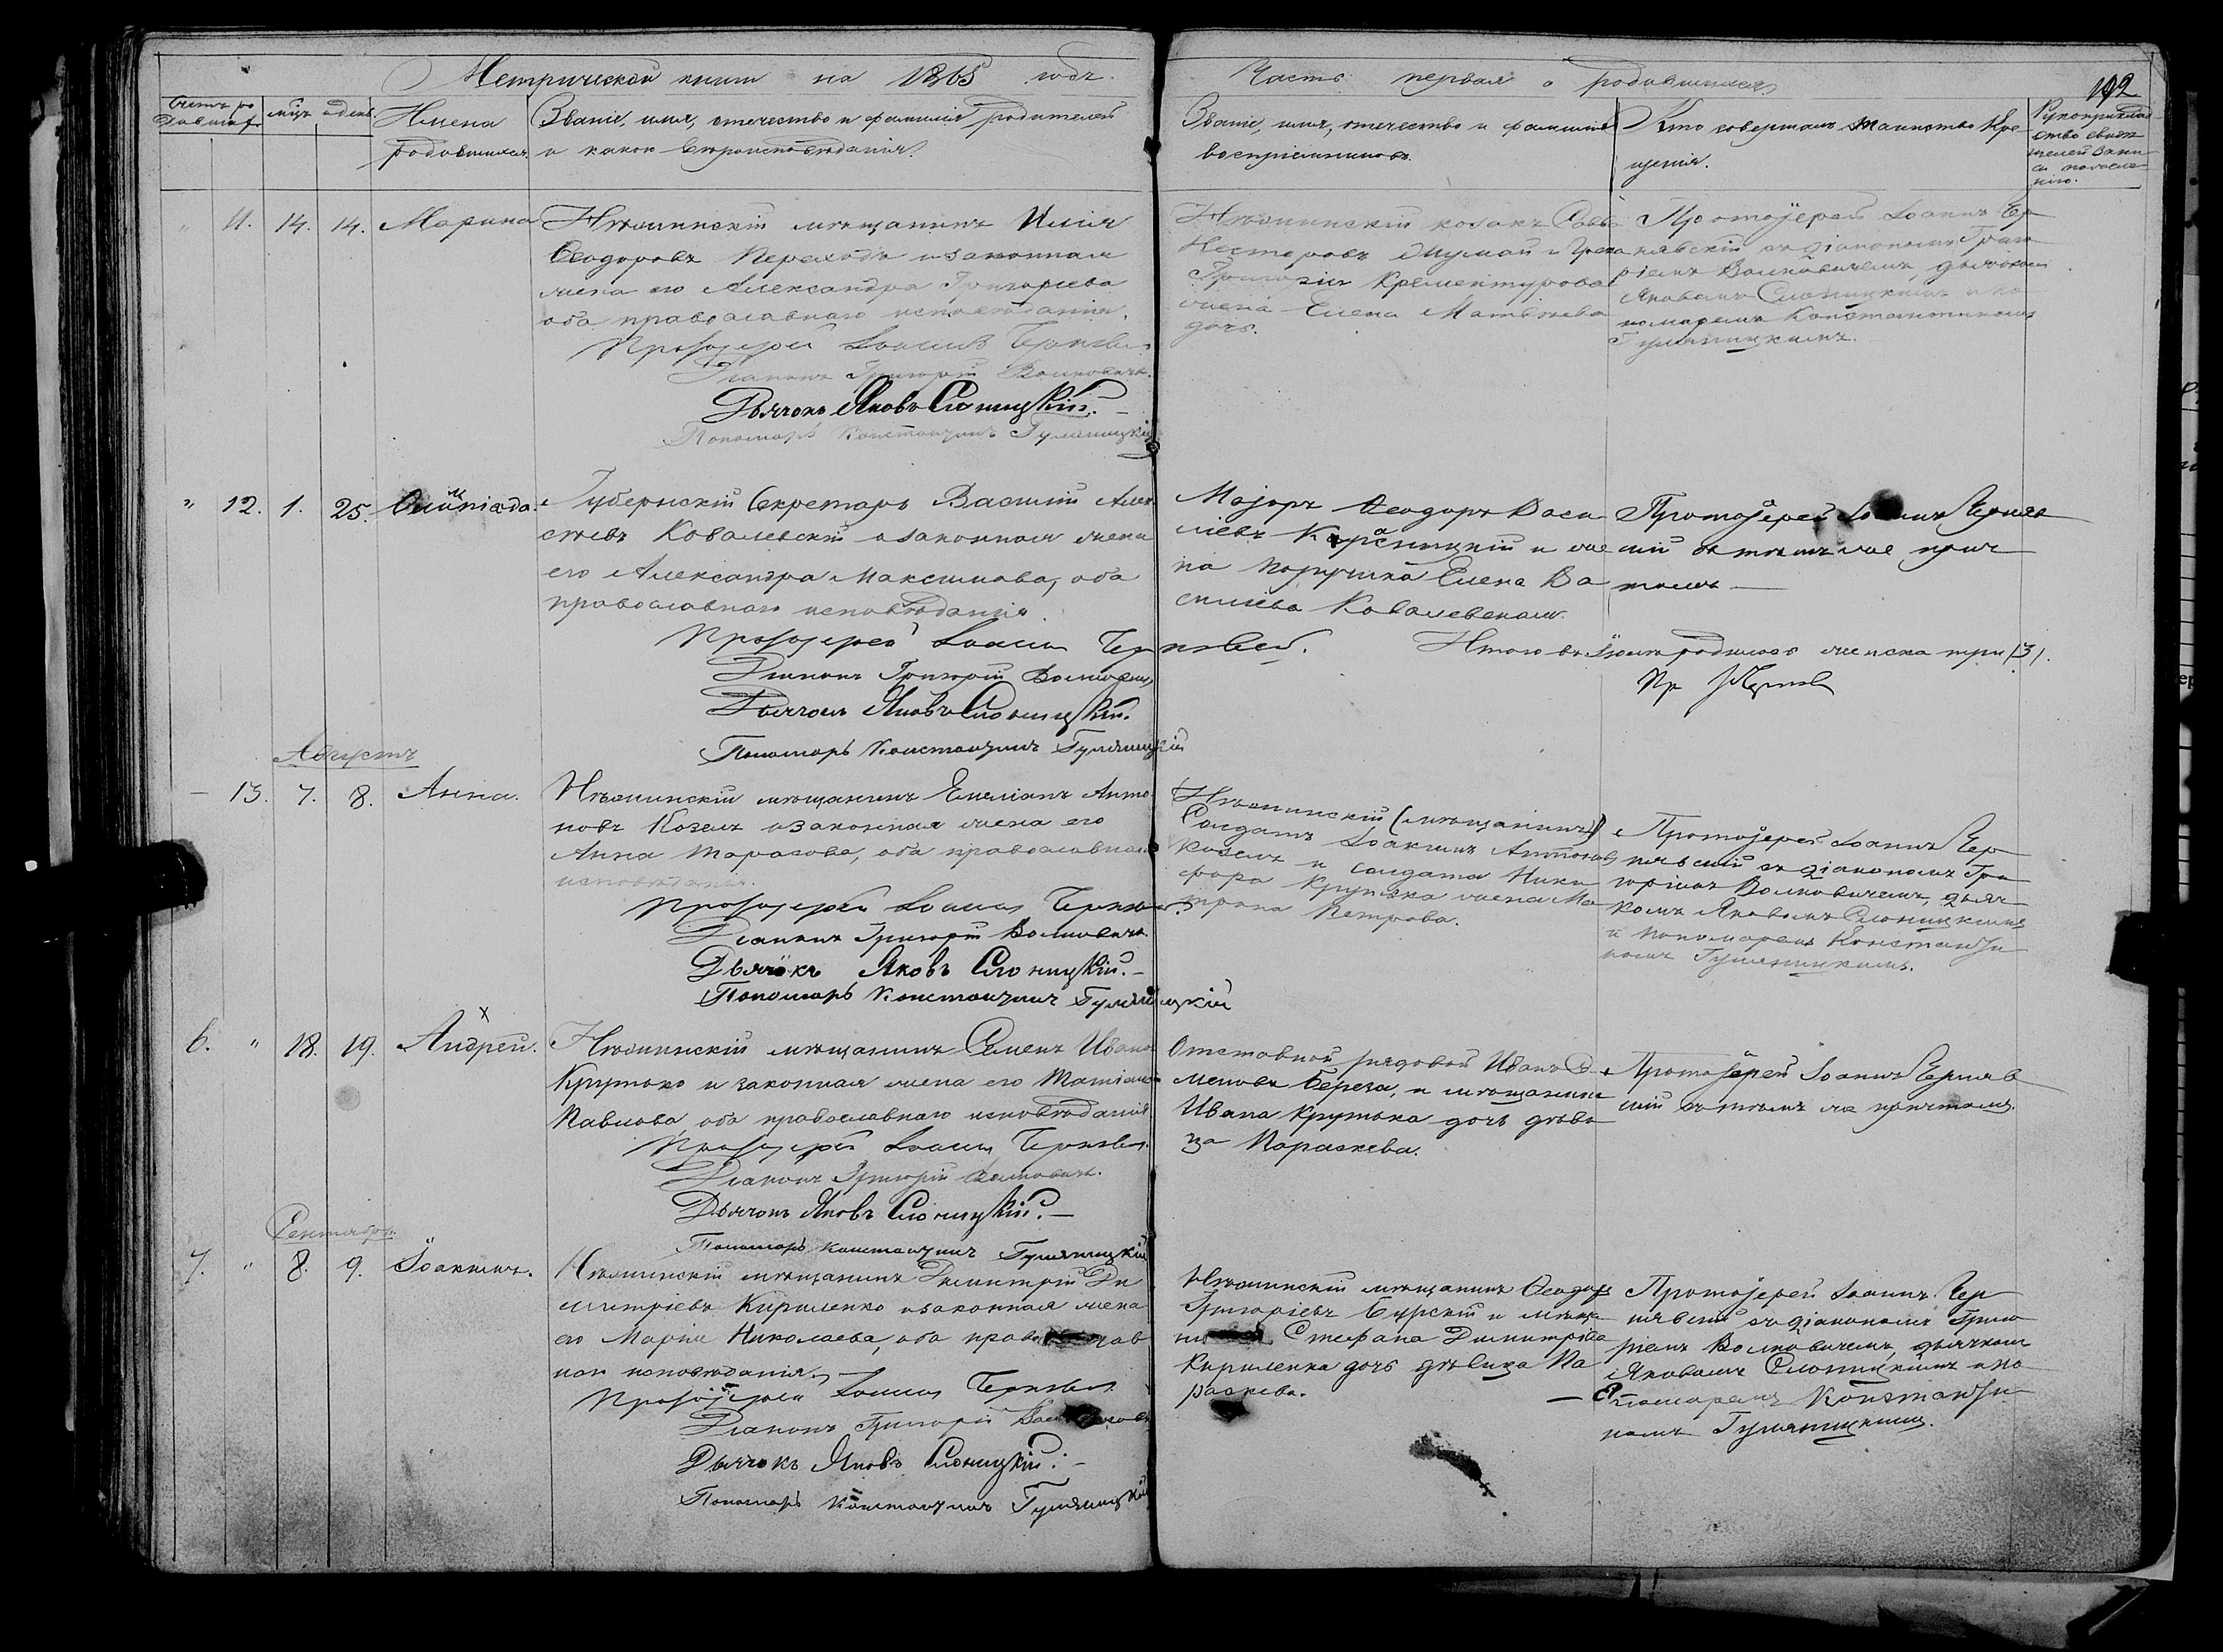 Метрической книги на 1865 годъ.
Часть первая о родившихся
192
Счетъ ро
дившихся
мѣц. и день
Имена
родившихся.
Званіе, имя, отечество и фамилія родителей
и какого вѣроисповѣданія.
Званіе, имя, отечество и фамилія
воспріемниковъ.
Кто совершалъ таинство Кре-
щенія.
Рукоприклад-
ство свидѣ-
телей записи
по желанію.
" 11. 14. 14. Марина
Нѣжинскій мѣщанинъ Илія
Ѳеодоровъ Переходъ и законная
жена его Александра Григорьева
оба православнаго исповѣданія.
Протоіерей Іоаннъ Чернявскій
Діаконъ Григорій Волковичъ.
Дьячокъ Яковъ Слоницкій.
Пономарь Константинъ Гумяницкій
Нѣжинскій козакъ Савва
Несторовъ Шумай и
Григорія Крементурова
жена Елена Матвѣева
дочь.
Протоіерей Іоаннъ Чер
нявскій съ діакономъ Григо
ріемъ Волковичемъ, дьячкомъ
Яковомъ Слоницкимъ и по
номаремъ Константиномъ
Гумяницкимъ.
" 12. 1. 25. Олимпіада.
Губернскій Секретарь Василій Алек
сѣевъ Ковалевскій и законная жена
его Александра Максимова, оба
православнаго исповѣданія.
Протоіерей Іоаннъ Чернявскій.
Діаконъ Григорій Волковичъ
Дьячокъ Яковъ Слоницкій.
Пономарь Константинъ Гумяницкій
Маіоръ Ѳеодоръ Васи
льевъ и же
на поручика Елена Ва
сильева Ковалевская.
Протоіерей Іоаннъ Черняв
скій съ тѣмъ же прич
томъ —
Итого въ Іюлѣ родилось женска три /3/.
Пр. І Черняв
Августъ
— 13. 7. 8. Анна.
Нѣжинскій мѣщанинъ Емеліанъ Анто
новъ Козелъ и законная жена его
Анна Тарасова, оба православнаго
исповѣданія.
Протоіерей Іоаннъ Чернявскій.
Діаконъ Григорій Волковичъ.
Дьячокъ Яковъ Слоницкій.
Пономарь Константинъ Гумяницкій
Нѣжинскій (мѣщанинъ)
Солдатъ Іоакимъ Антоновъ
Козелъ и солдата Ники
фора Крутька жена Ма
трона Петрова.
Протоіерей Іоаннъ Чер
нявскій съ діакономъ Гри
горіемъ Волковичемъ, дьяч
комъ Яковомъ Слоницкимъ
и пономаремъ Константи
номъ Гумяницкимъ.
х
6. " 18. 19. Андрей.
Нѣжинскій мѣщанинъ Семенъ Иванов
Крутько и законная жена его Татіана
Павлова, оба православнаго исповѣданія.
Протоіерей Іоаннъ Чернявскій.
Діаконъ Григорій Волковичъ.
Дьячокъ Яковъ Слоницкій. —
Пономарь Константинъ Гумяницкій
Отставной рядовой Иванъ Се
меновъ Береза, и мѣщанина
Ивана Крутька дочь дѣви
ца Параскева.
Протоіерей Іоаннъ Черняв
скій съ тѣмъ же причтомъ.
Сентябрь.
7. " 8. 9. Іоакимъ.
Нѣжинскій мѣщанинъ Димитрій Ди
митріевъ Кириленко и законная жена
его Марія Николаева, оба православ
наго исповѣданія.
Протоіерей Іоаннъ Чернявскій
Діаконъ Григорій Волковичъ
Дьячокъ Яковъ Слоницкій. —
Пономарь Константинъ Гумяницкій
Нѣжинскій мѣщанинъ Ѳеодоръ
Григоріевъ Бурскій и мѣща
нина Стефана Димитріева
Кириленка дочь дѣвица Па
раскева.
Протоіерей Іоаннъ Чер
нявскій съ діакономъ Григо
ріемъ Волковичемъ, дьячкомъ
Яковомъ Слоницкимъ и по
номаремъ Константи
номъ Гумяницкимъ.